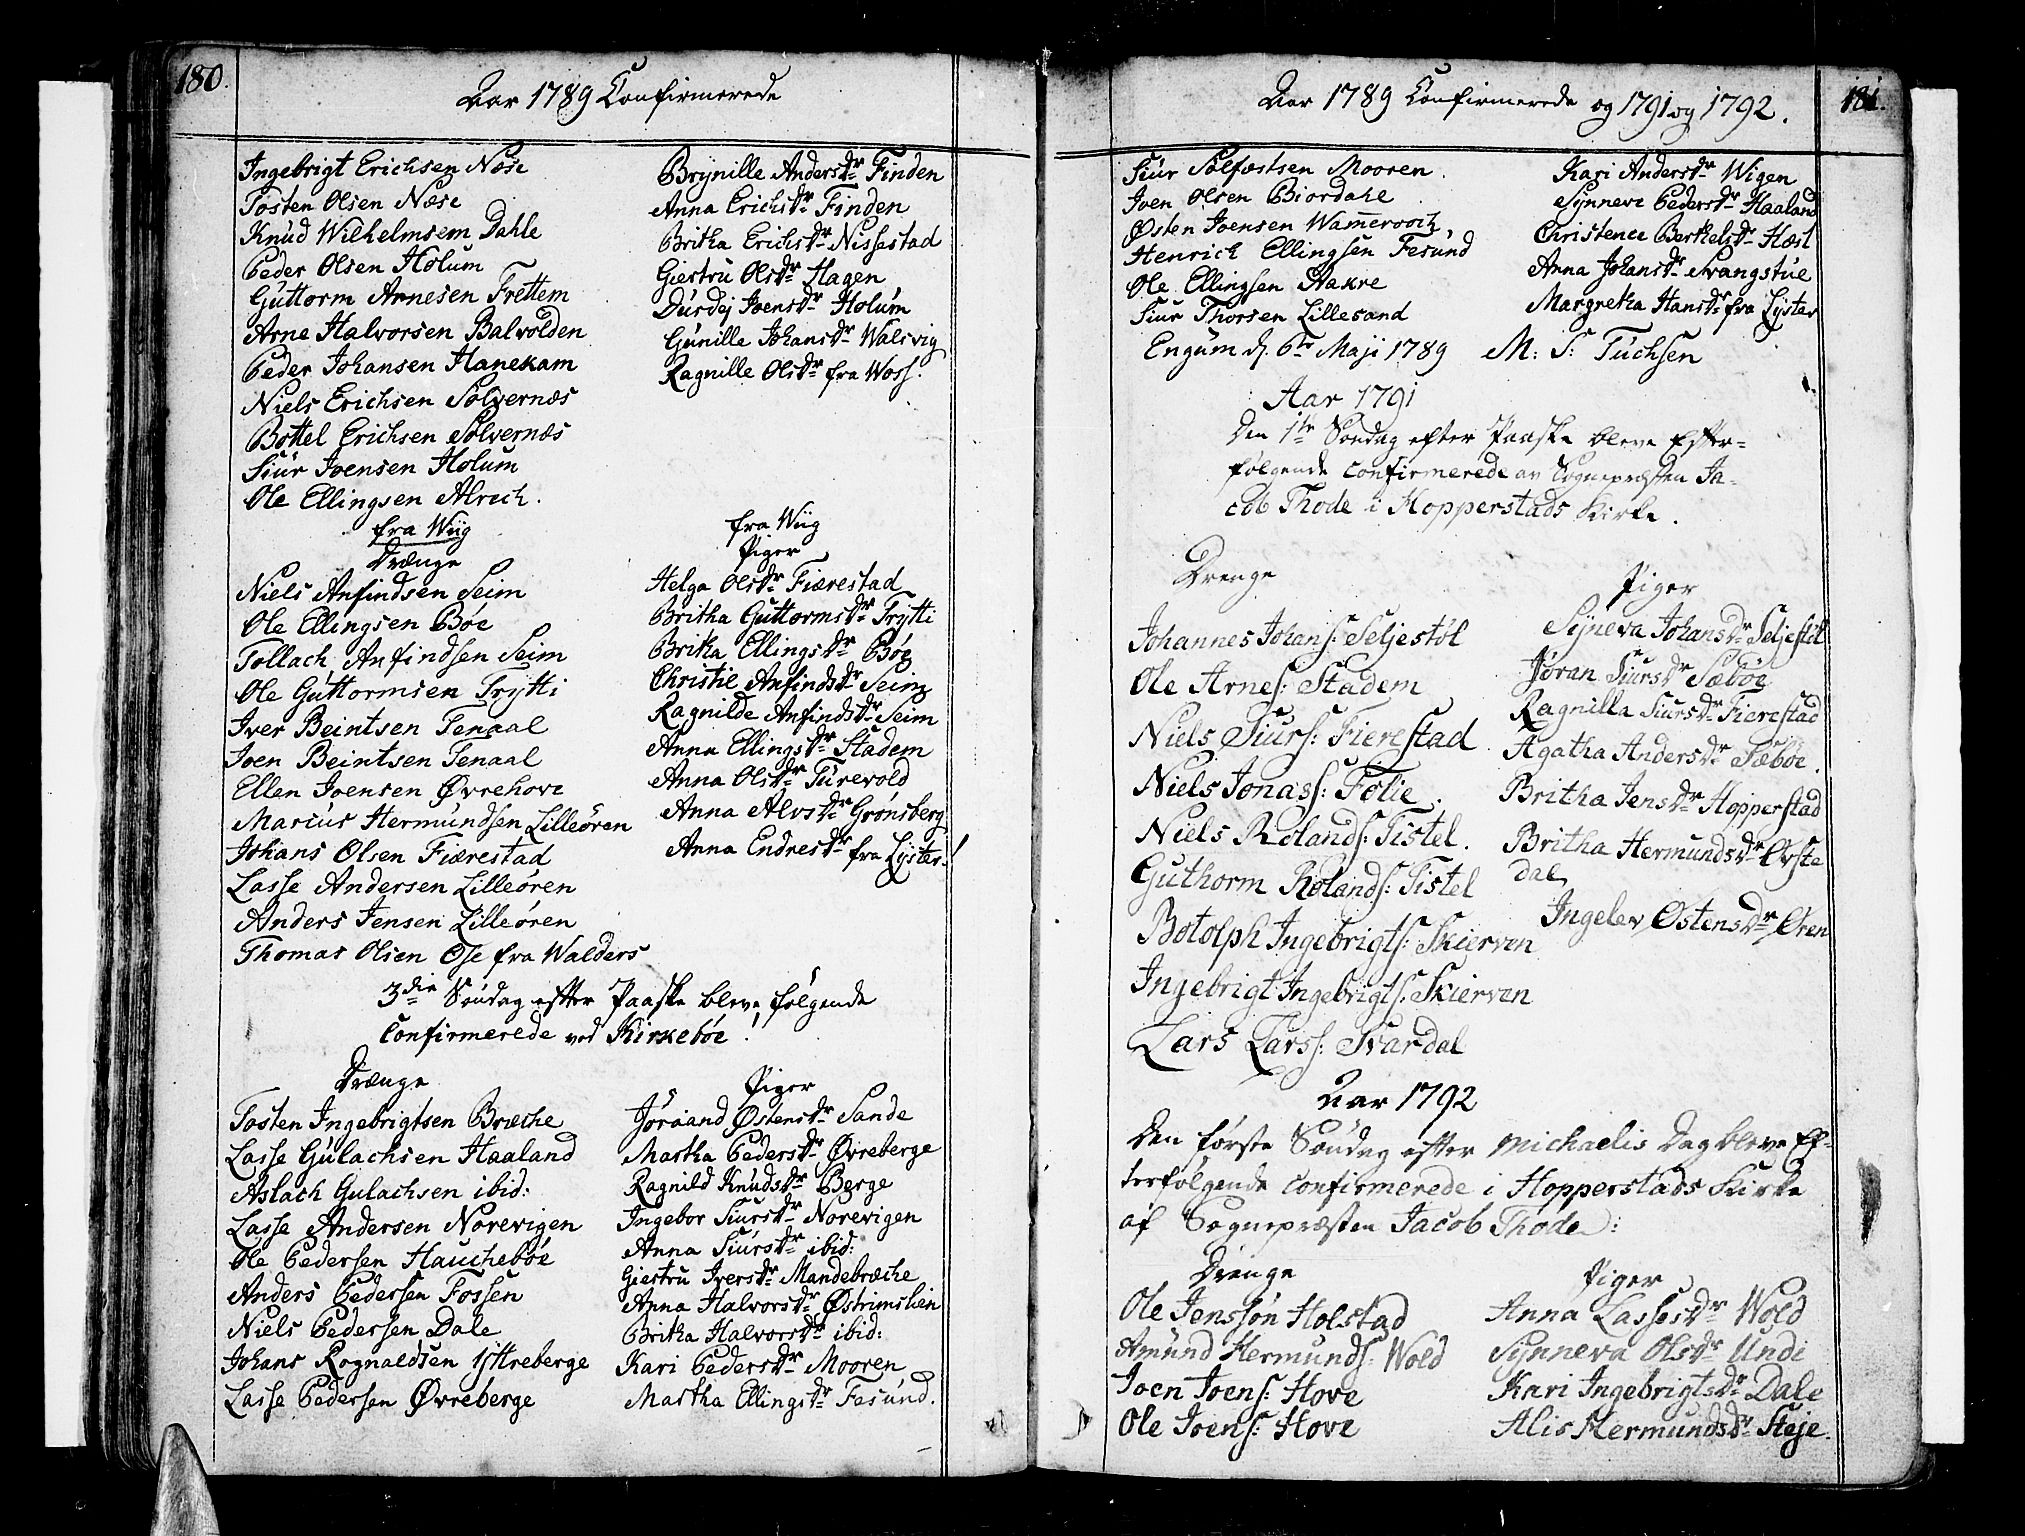 180.
Aar 1789 Confirmerede
Ingebrigt Erichsen Næse
Tosten Olsen Næse
Knud Wilhelmsem Dahle
Peder Olsen Holum
Guttorm Arnesen Frettem
Arne Halvorsen Balvolden
Peder Johansen Hanekam
Niels Erichsen Solvernæs
Bottel Erichsen Solvernæs
Siur Joensen Holum
Ole Ellingsen Alrech.
fra Wiig
Drænge
Niels Anfindsen Seim
Ole Ellingsen Bøe
Tollach Anfindsen Seim
Ole Guttormsen Trytti
Iver Beintsen Tenaal
Joen Beintsen Tenaal
Ellen Joensen Øvrehove
Marcus Hermundsen Lilleøren
Johans Olsen Fiærestad
Lasse Andersen Lilleøren
Anders Jensen Lilleøren
Thomas Olsen Ose fra Walders
Brynille Andersdr Finden
Anna Erichsdr Finden
Britha Erichsdr Nissestad
Giestru Olsdr Hagen
Durdej Joensdr Holum
Gunille Johansdr Walsvig
Ragnille Olsdr fra Woss.
fra Wiig
Piger
Helga Olsdr Fiærestad
Britha Guttormsdr Trytti
Britha Ellingsdr Bøe
Christie Anfindsdr Seim
Ragnilde Anfindsdr Seim
Anna Ellingsdr Stadem
Anna Olsdr Turevold
Anna Alvsdr Grønsberg
Anna Endresdr fra Lyster!
3die Søndag efter Paaske bleve følgende
Confirmerede ved Kirkebøe!
Drænge
Tosten Ingebrigtsen Bræche
Lasse Gulachsen Haaland
Aslach Gulachsen ibid:
Lasse Andersen Norevigen
Ole Pedersen Hauchebøe
Anders Pedersen Fossen
Niels Pedersen Dale
Johans Rognaldsen Yttreberge
Lasse Pedersen Øvreberge
Piger
Jøraand Østensdr Sande
Martha Pedersdr Øvreberge
Ragnild Knudsdr Berge
Ingebor Siursdr Norevigen
Anna Siursdr ibid:
Giestru Iversdr Mandebræche
Anna Halvorsdr Østrimslien
Britha Halvorsdr ibid:
Kari Pedersdr Mooren
Martha Ellingsdr Fesund.
Aar 1789 Confirmerede og 1791 og 1792.
181.
Siur Solfæstsen Mooren.
Joen Olsen Biordahl
Østen Joensen Wammervoch,
Henrich Ellingsen Fesund
Ole Ellingsen Hakre
Siur Thorsen Lillesand
Kari Andersdr Wigen
Synneve Pedersdr Haaland
Christence Berthelsdr Hæsl
Anna Johansdr Svangstue
Margretha Hansdr fra Lyster
Engum d. 6te Maji 1789 M: S: Tuchsen
Aar 1791
Den 1te Søndag efter Paaske bleve Efter-
følgende Confirmerede av Sognepræsten Ja-
cob Thode i Hopperstads Kirke.
Drenge
Johannes Johans: Seljestøl
Ole Arnes: Stadem
Niels Siurs: Fierestad
Niels Jonass: Folie.
Niels Rolands: Tistel.
Guthorm Rolands: Tistel
Botolph Ingebrigts: Skierven
Ingebrigt Ingebrigts: Skierven
Lars Larss: Svardal
Piger
Synneva Johansdr Seljestøl
Jøran Siursdr Sæbøe
Ragnilla Siursdr Fierestad
Agatha Andersdr Sæbøe.
Britha Jensdr Hopperstad
Britha Hermundsdr Ørste
dal
Ingelev Østensdr Øren
Aar 1792
Den første Søndag efter Michaelis Dag bleve Ef-
terfølgende Confirmerede i Hopperstads Kirke
af Sognepræsten Jacob Thode:
Drenge
Ole Jenssøn Holstad
Amund Hermunds: Wold
Joen Joens: Hove
Ole Joens: Hove
Piger
Anna Lassesdr Wold
Synneva Olsdr Undi
Kari Ingebrigtsdr Dale
Alis Hermundsdr Steje.